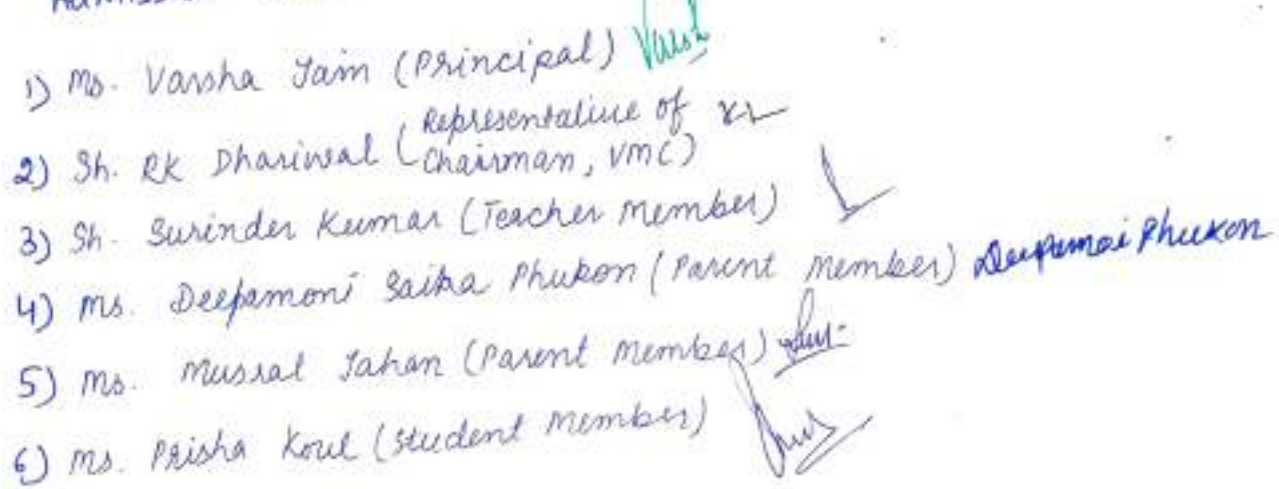 1) Ms. Varsha Jain (Principal) Varsh
2) Sh. RK Dhariwal (Representative of
Chairman, VMC)
3) Sh. Surinder Kumar (Teacher Member)
4) Ms. Deepamoni Saikia Phukon (Parent Member) Deepamoni Phukon
5) Ms. Mussrat Jahan (Parent Member)
6) Ms. Prisha Koul (Student Member)